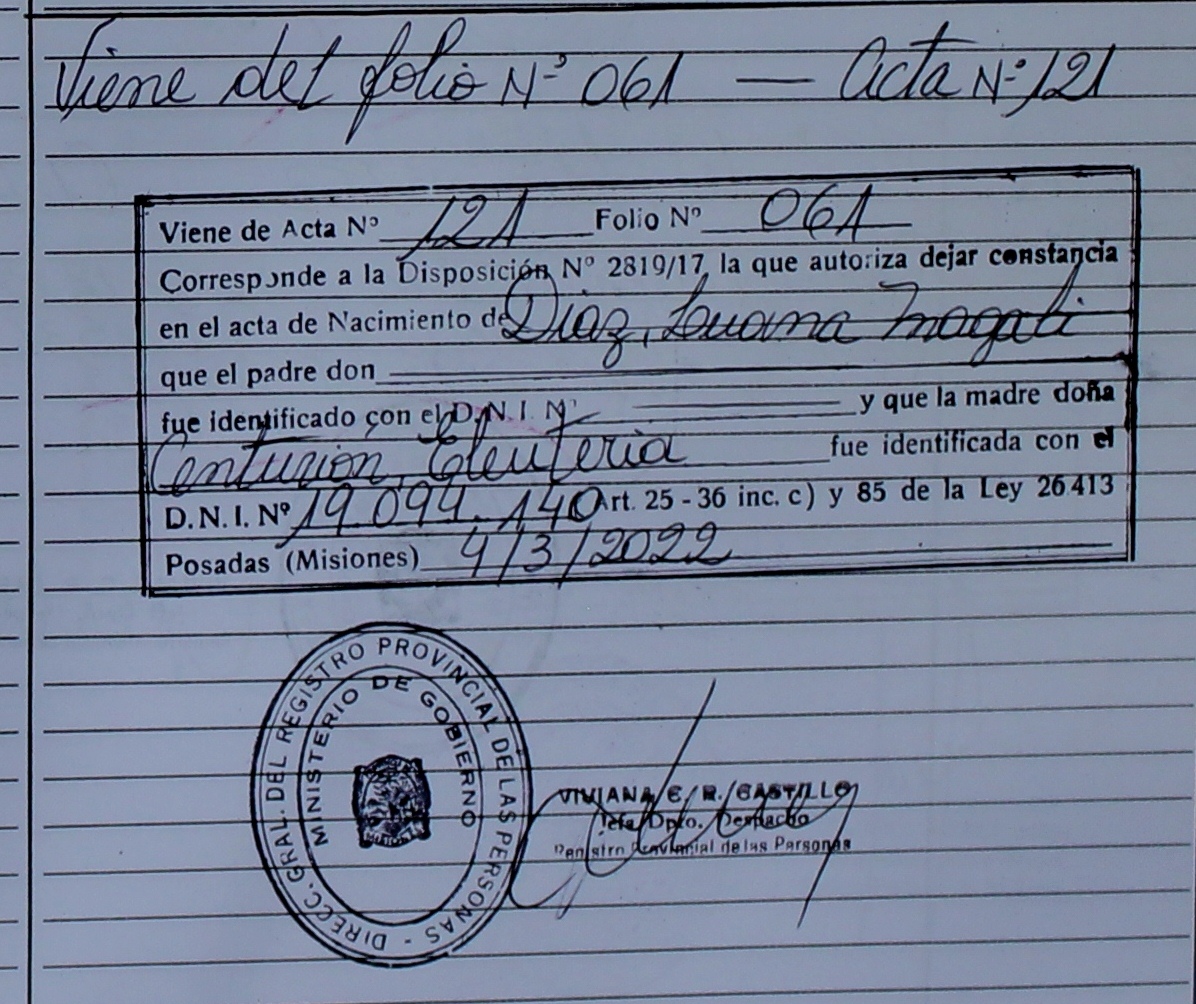 Viene del folio Nº 061 — Acta Nº 121
Viene de Acta Nº 121 Folio Nº 061
Corresponde a la Disposición Nº 2819/17, la que autoriza dejar constancia
en el acta de Nacimiento de Diaz, Luana Magali
que el padre don
fue identificado con el D.N.I. Nº y que la madre doña
Centurión, Eleuteria fue identificada con el
D.N.I. Nº 19.094.140 Art. 25 - 36 inc. c) y 85 de la Ley 26413
Posadas (Misiones) 4/3/2022
DIRECC. GRAL. DEL REGISTRO PROVINCIAL DE LAS PERSONAS -
MINISTERIO DE GOBIERNO
VIVIANA E. R. CASTILLO
Jefa Dpto. Despacho
Registro Provincial de las Personas